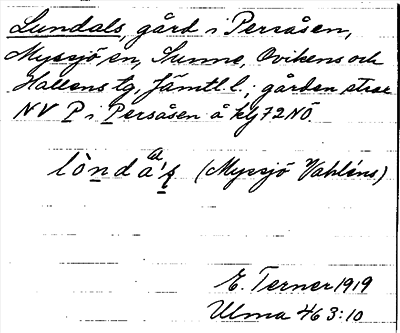 Lundals, gård i Persåsen,
Myssjö sn, Sunne, Ovikens och
Hallens tg, Jämtl. l.; gården strax
NV P i Persåsen å klj 72 NÖ.
(Myssjö Vahléns)
E. Terner 1919
Ulma 463:10